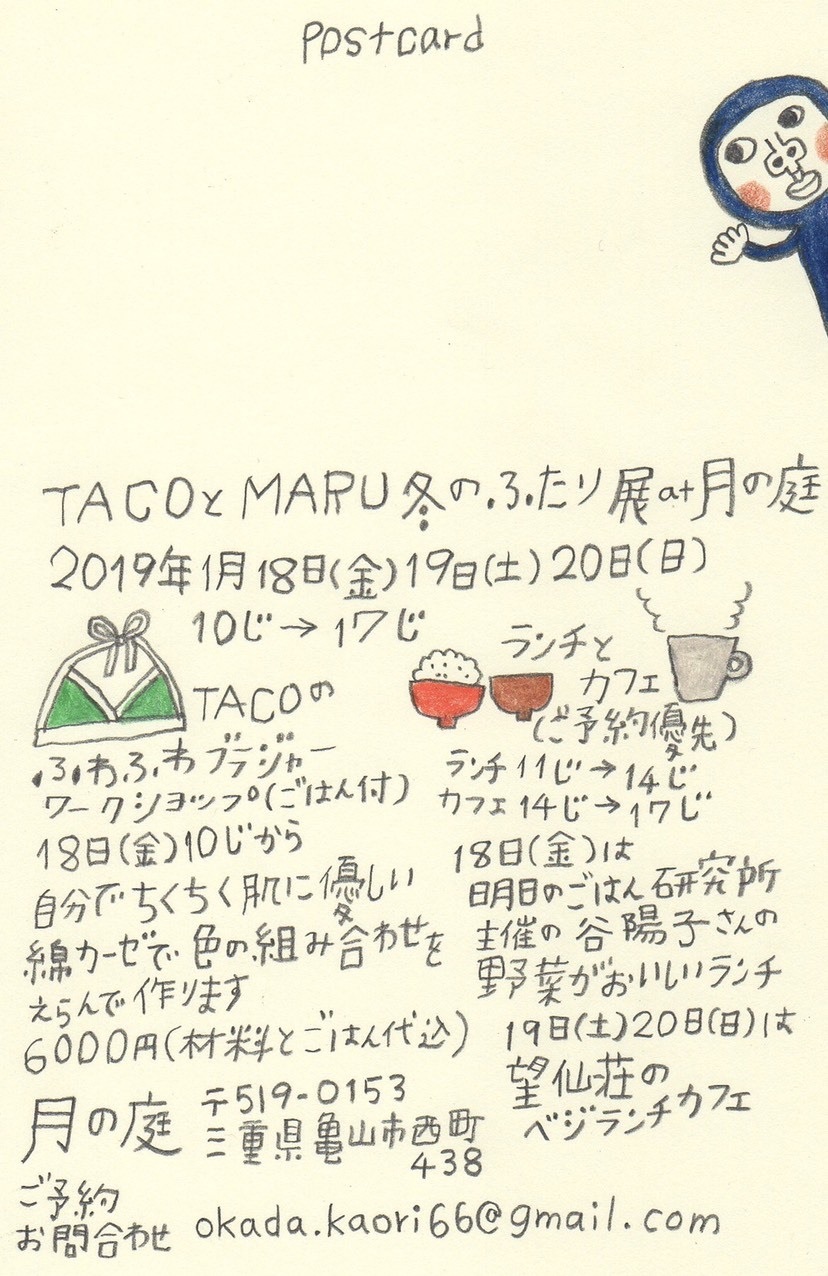 Postcard
TACOとMARU冬のふたり展at月の庭
2019年1月18日(金)19日(土)20日(日)
10じ→17じ
TACOの
ふわふわブラジャー
ワークショップ(ごはん付)
18日(金)10じから
自分でちくちく肌に優しい
綿ガーゼで色の組み合わせを
えらんで作ります
6000円(材料とごはん代込)
ランチと
カフェ
(ご予約優先)
ランチ11じ→14じ
カフェ14じ→17じ
18日(金)は
明日のごはん研究所
主催の谷陽子さんの
野菜がおいしいランチ
19日(土)20日(日)は
望仙荘の
ベジランチカフェ
月の庭
〒519-0153
三重県亀山市西町
438
ご予約
お問合わせ
okada.kaori66@gmail.com